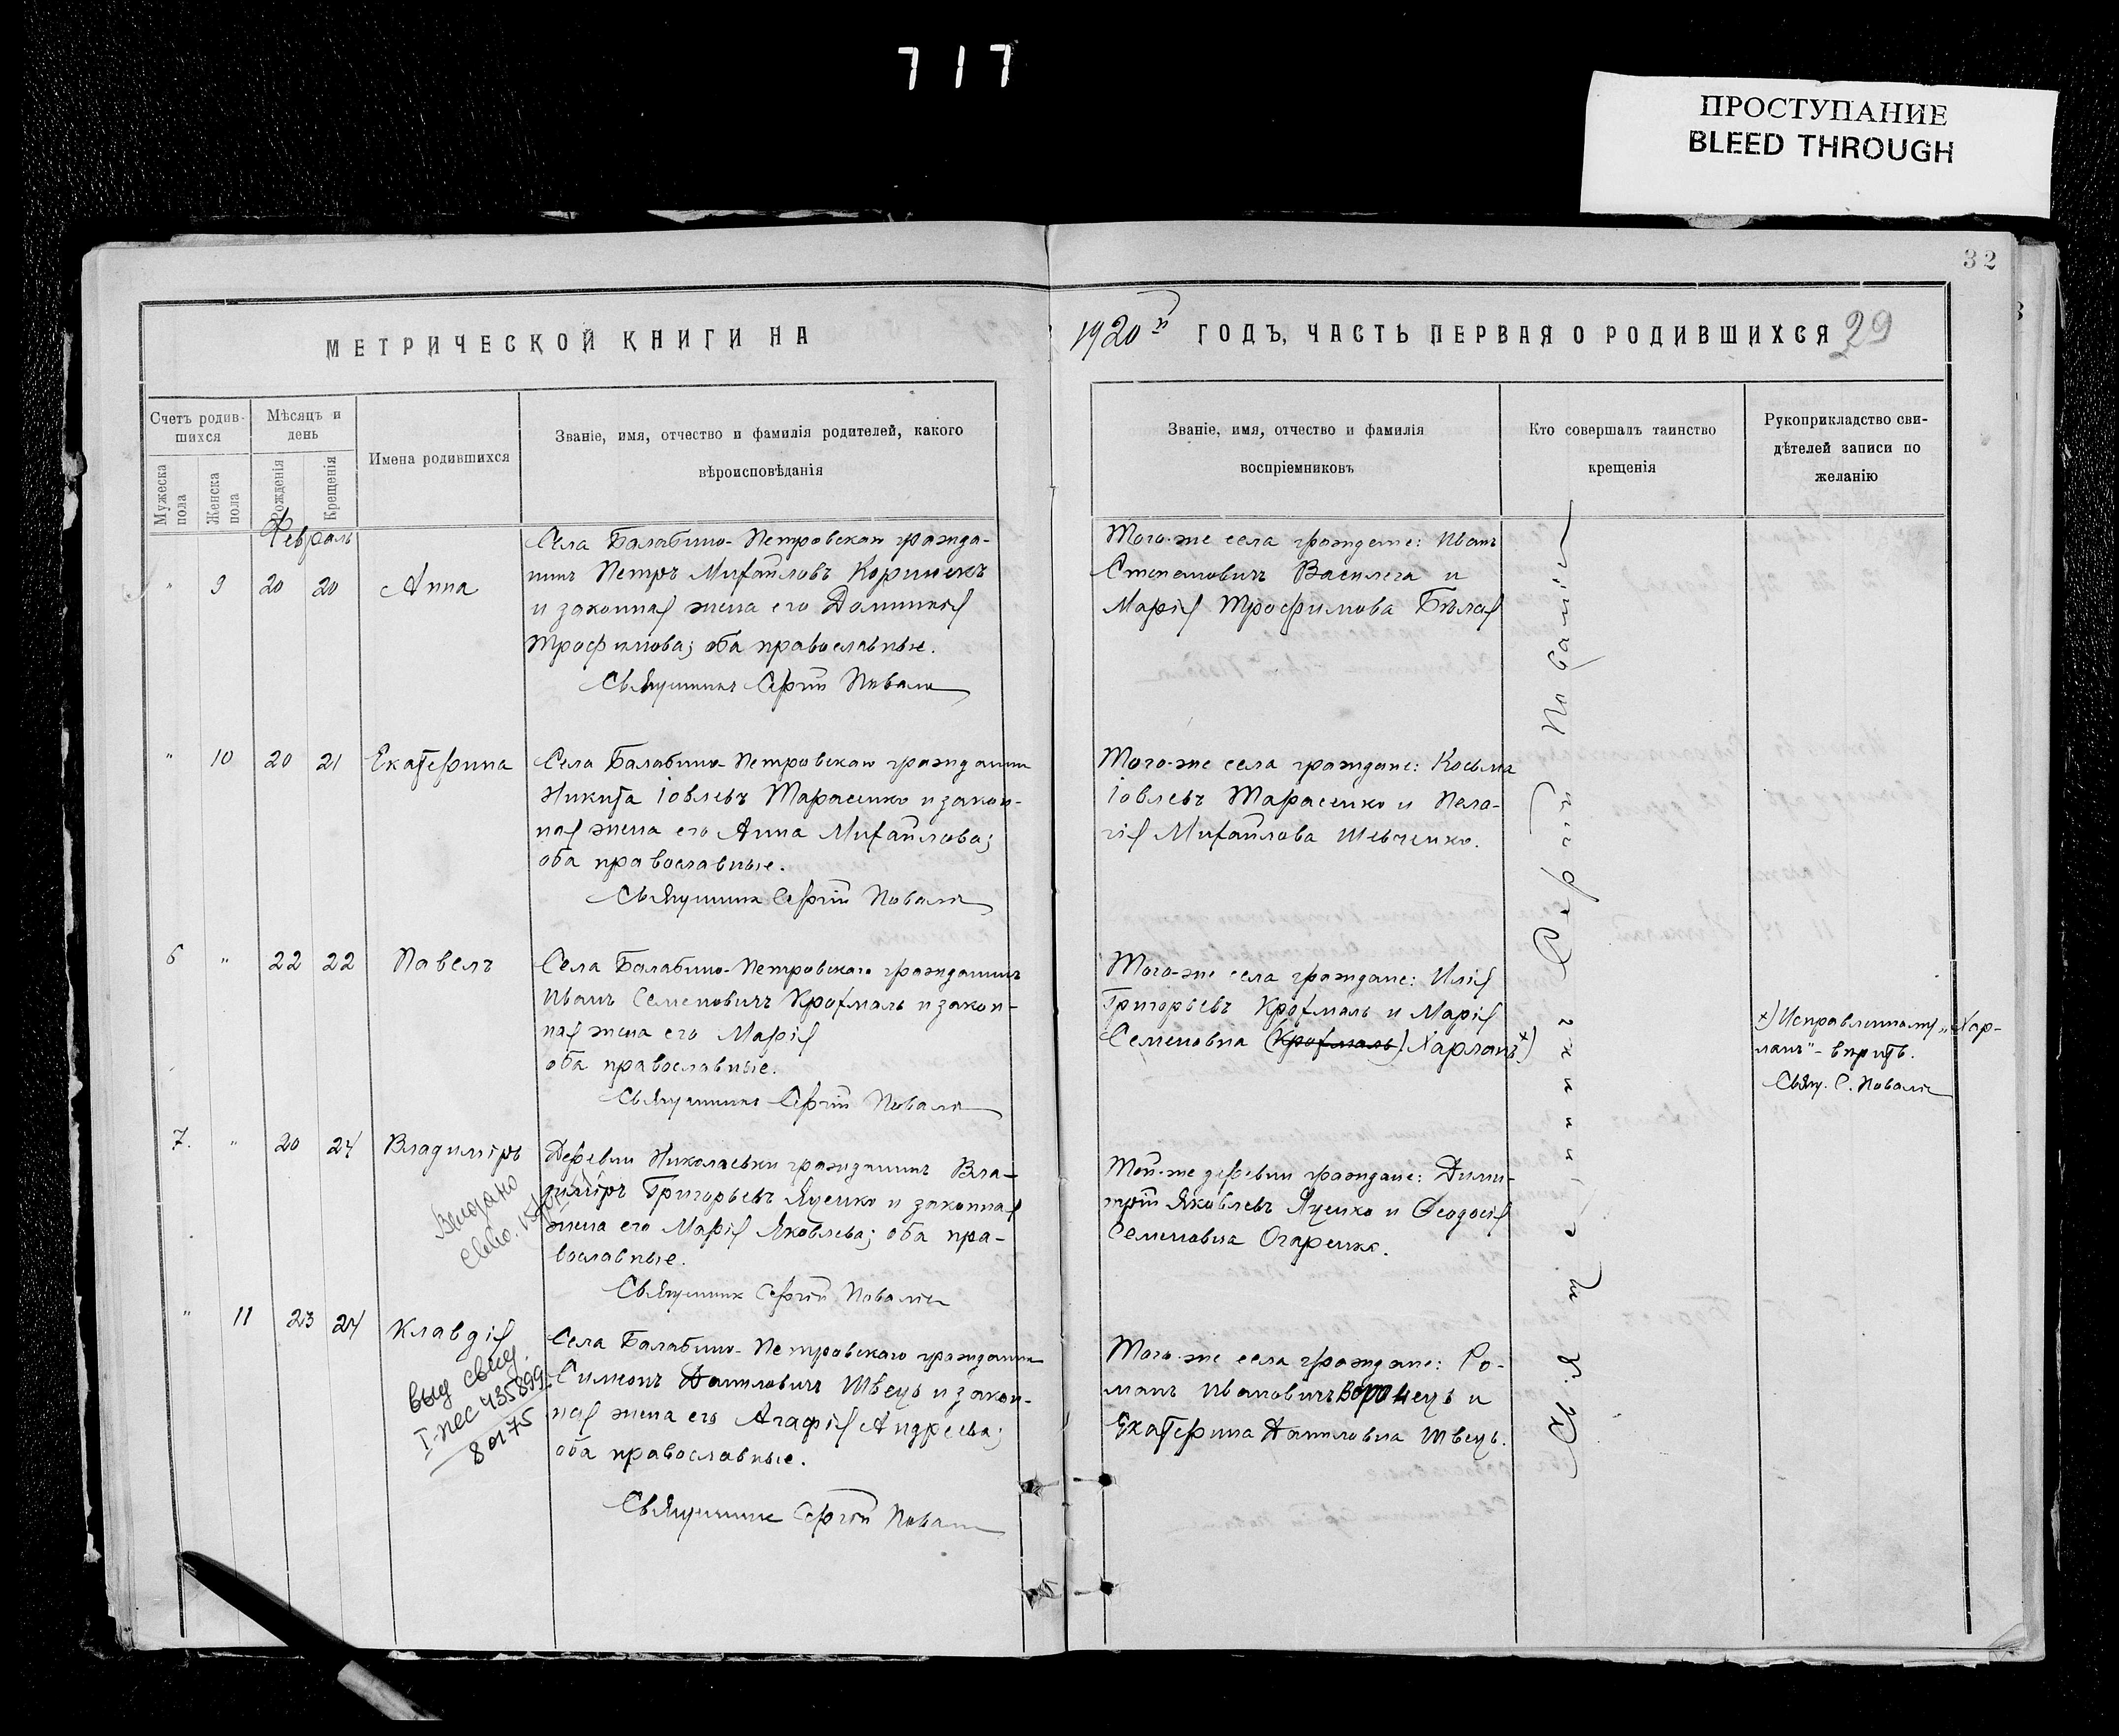 717
ПРОСТУПАНИЕ
BLEED THROUGH
32
МЕТРИЧЕСКОЙ КНИГИ НА
1920й ГОДЪ, ЧАСТЬ ПЕРВАЯ О РОДИВШИХСЯ 29
Счетъ родив-
шихся
Мужеска пола
Женска пола
Мѣсяцъ и
день
Рожденія
Крещенія
Имена родившихся
Званіе, имя, отчество и фамилія родителей, какого
вѣроисповѣданія
Званіе, имя, отчество и фамилія
воспріемниковъ
Кто совершалъ таинство
крещенія
Рукоприкладство сви-
дѣтелей записи по
желанію
Февраль
" 9 20 20 Анна
Села Балабино-Петровскаго гражда-
нинъ Петръ Михайловъ Коринекъ
и законная жена его Домникія
Трофимова; оба православные.
Священникъ Сергій Повали
Того-же села граждане: Иванъ
Степановичъ Василега и
Марія Трофимова Бѣлая
" 10 20 21 Екатерина
Села Балабино-Петровскаго гражданин
Никита Іовлевъ Тарасенко и закон-
ная жена его Анна Михайлова;
оба православные.
Священник Сергій Повали
Того-же села граждане: Косьма
Іовлевъ Тарасенко и Пела-
гія Михайлова Шевченко.
6 " 22 22 Павелъ
Села Балабино-Петровскаго гражданинъ
Иванъ Семеновичъ Крохмаль и закон-
ная жена его Марія
оба православные.
Священникъ Сергій Повали
Того-же села граждане: Илія
Григорьевъ Крохмаль и Марія
Семеновна (Крохмаль) Харланъ х)
х) Исправленному "Хар-
ланъ" - вѣрить.
Свящ. С. Повали
7. " 20 24 Владиміръ
Выдано
Деревни Николаевки гражданинъ Вла-
диміръ Григорьевъ Яценко и законная
жена его Марія Яковлева; оба пра-
вославные.
Священник Сергій Повали
Той-же деревни граждане: Дими-
трій Яковлевъ Яценко и Ѳеодосія
Семеновна Огаренко.
" 11 23 24 Клавдія
выд свид.
I-ПЕС 435899
8 01 75
Села Балабино-Петровскаго гражданин
Симеонъ Даниловичъ Швець и закон-
ная жена его Агафія Андреева;
оба православные.
Священник Сергій Повали
Того-же села граждане: Ро-
манъ Ивановичъ Воронець и
Екатерина Даниловна Швець.
Священникъ Сергій Повали